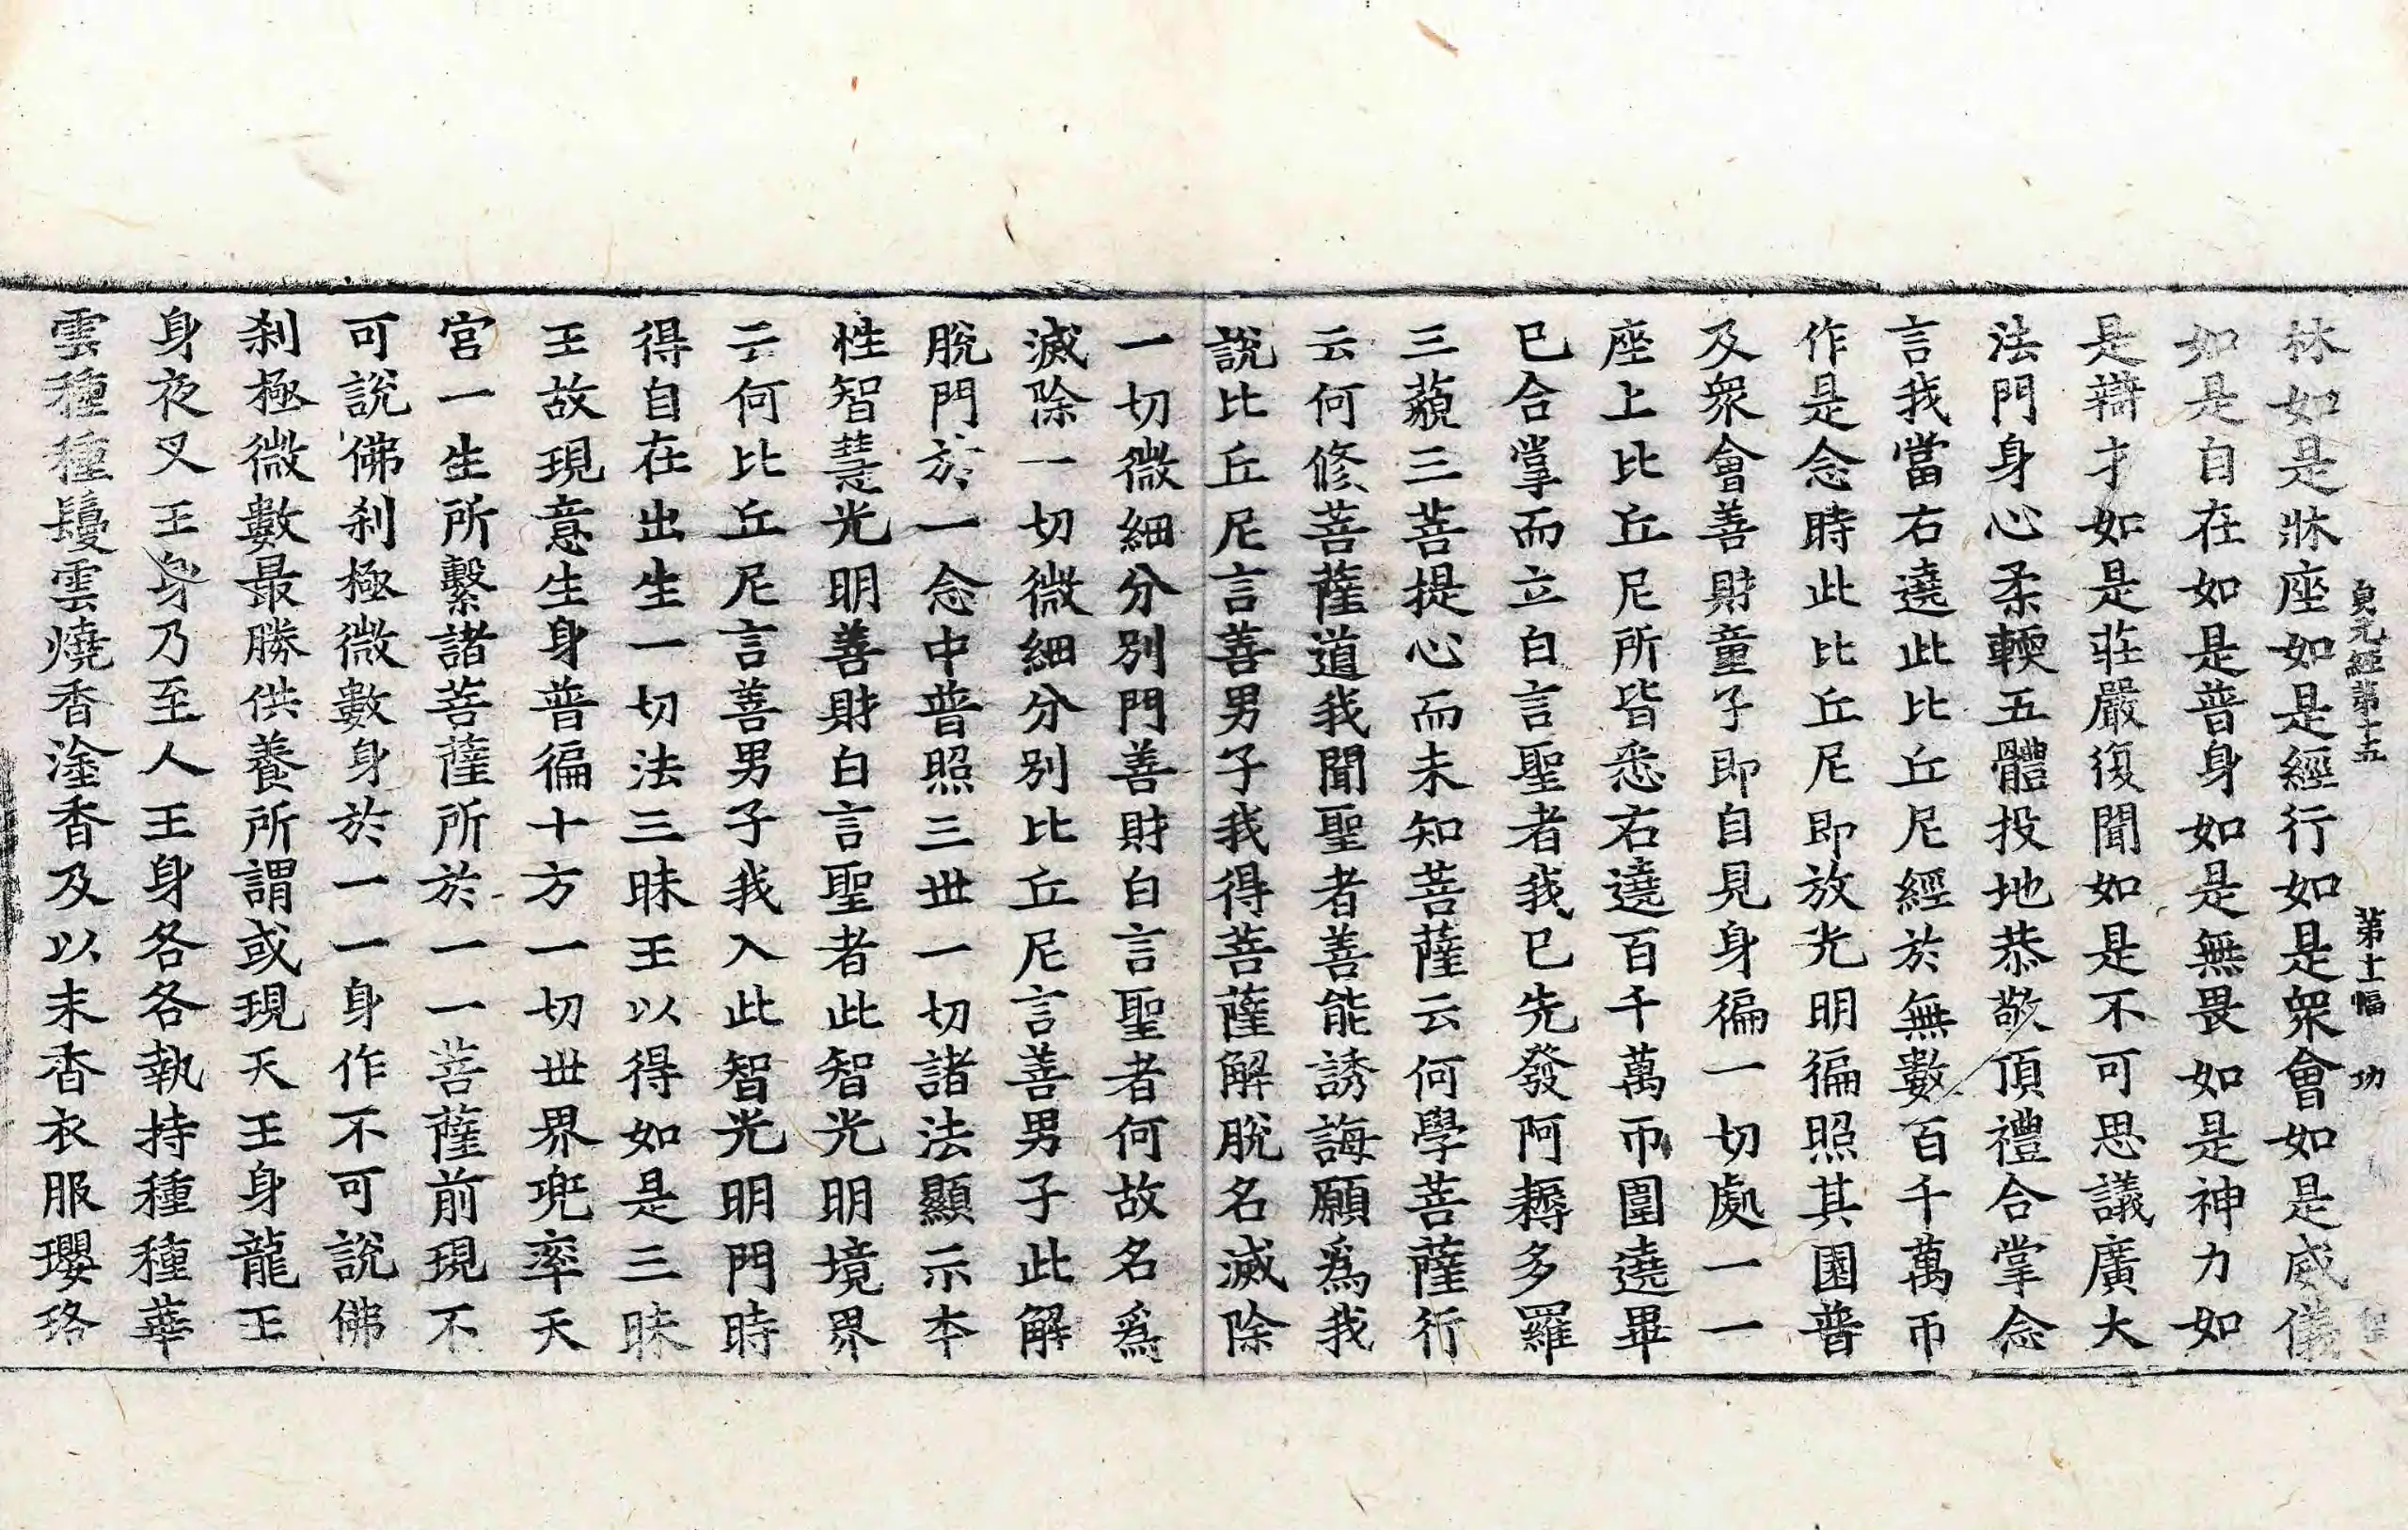 貞元經第十五 第十一幅 功
林如是牀座如是經行如是眾會如是威儀
如是自在如是普身如是無畏如是神力如
是辯才如是莊嚴復聞如是不可思議廣大
法門身心柔輭五體投地恭敬頂禮合掌念
言我當右遶此比丘尼經於無數百千萬帀
作是念時此比丘尼即放光明徧照其園普
及眾會善財童子即自見身徧一切處一一
座上比丘尼所皆悉右遶百千萬帀圍遶畢
已合掌而立白言聖者我已先發阿耨多羅
三藐三菩提心而未知菩薩云何學菩薩行
云何修菩薩道我聞聖者善能誘誨願爲我
說比丘尼言善男子我得菩薩解脫名滅除
一切微細分別門善財白言聖者何故名爲
滅除一切微細分別比丘尼言善男子此解
脫門於一念中普照三世一切諸法顯示本
性智慧光明善財白言聖者此智光明境界
云何比丘尼言善男子我入此智光明門時
得自在出生一切法三昧王以得如是三昧
王故現意生身普徧十方一切世界兜率天
宮一生所繫諸菩薩所於一一菩薩前現不
可說佛剎極微數身於一一身作不可說佛
剎極微數最勝供養所謂或現天王身龍王
身夜叉王身乃至人王身各各執持種種華
雲種種鬘雲燒香塗香及以末香衣服瓔珞